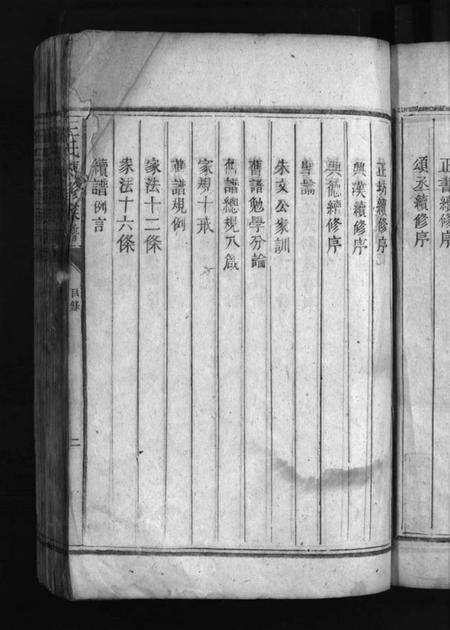 正書續修序
頌丞續修序
正坊續修序
興漢續修序
興舊續修序
聖諭
朱文公家訓
舊譜勉學分論
舊譜總規八箴
家規十戒
舊譜規例
家法十二條
家法十六條
續譜例言
目錄
二